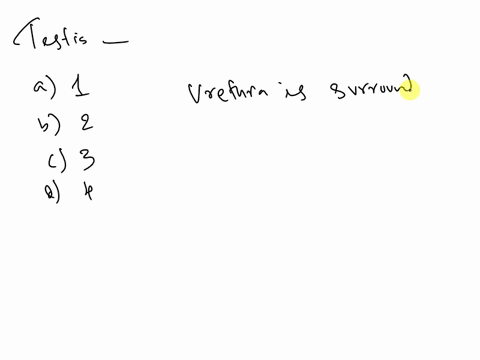 Testis —
a) 1
b) 2
c) 3
d) 4
Urethra is surround